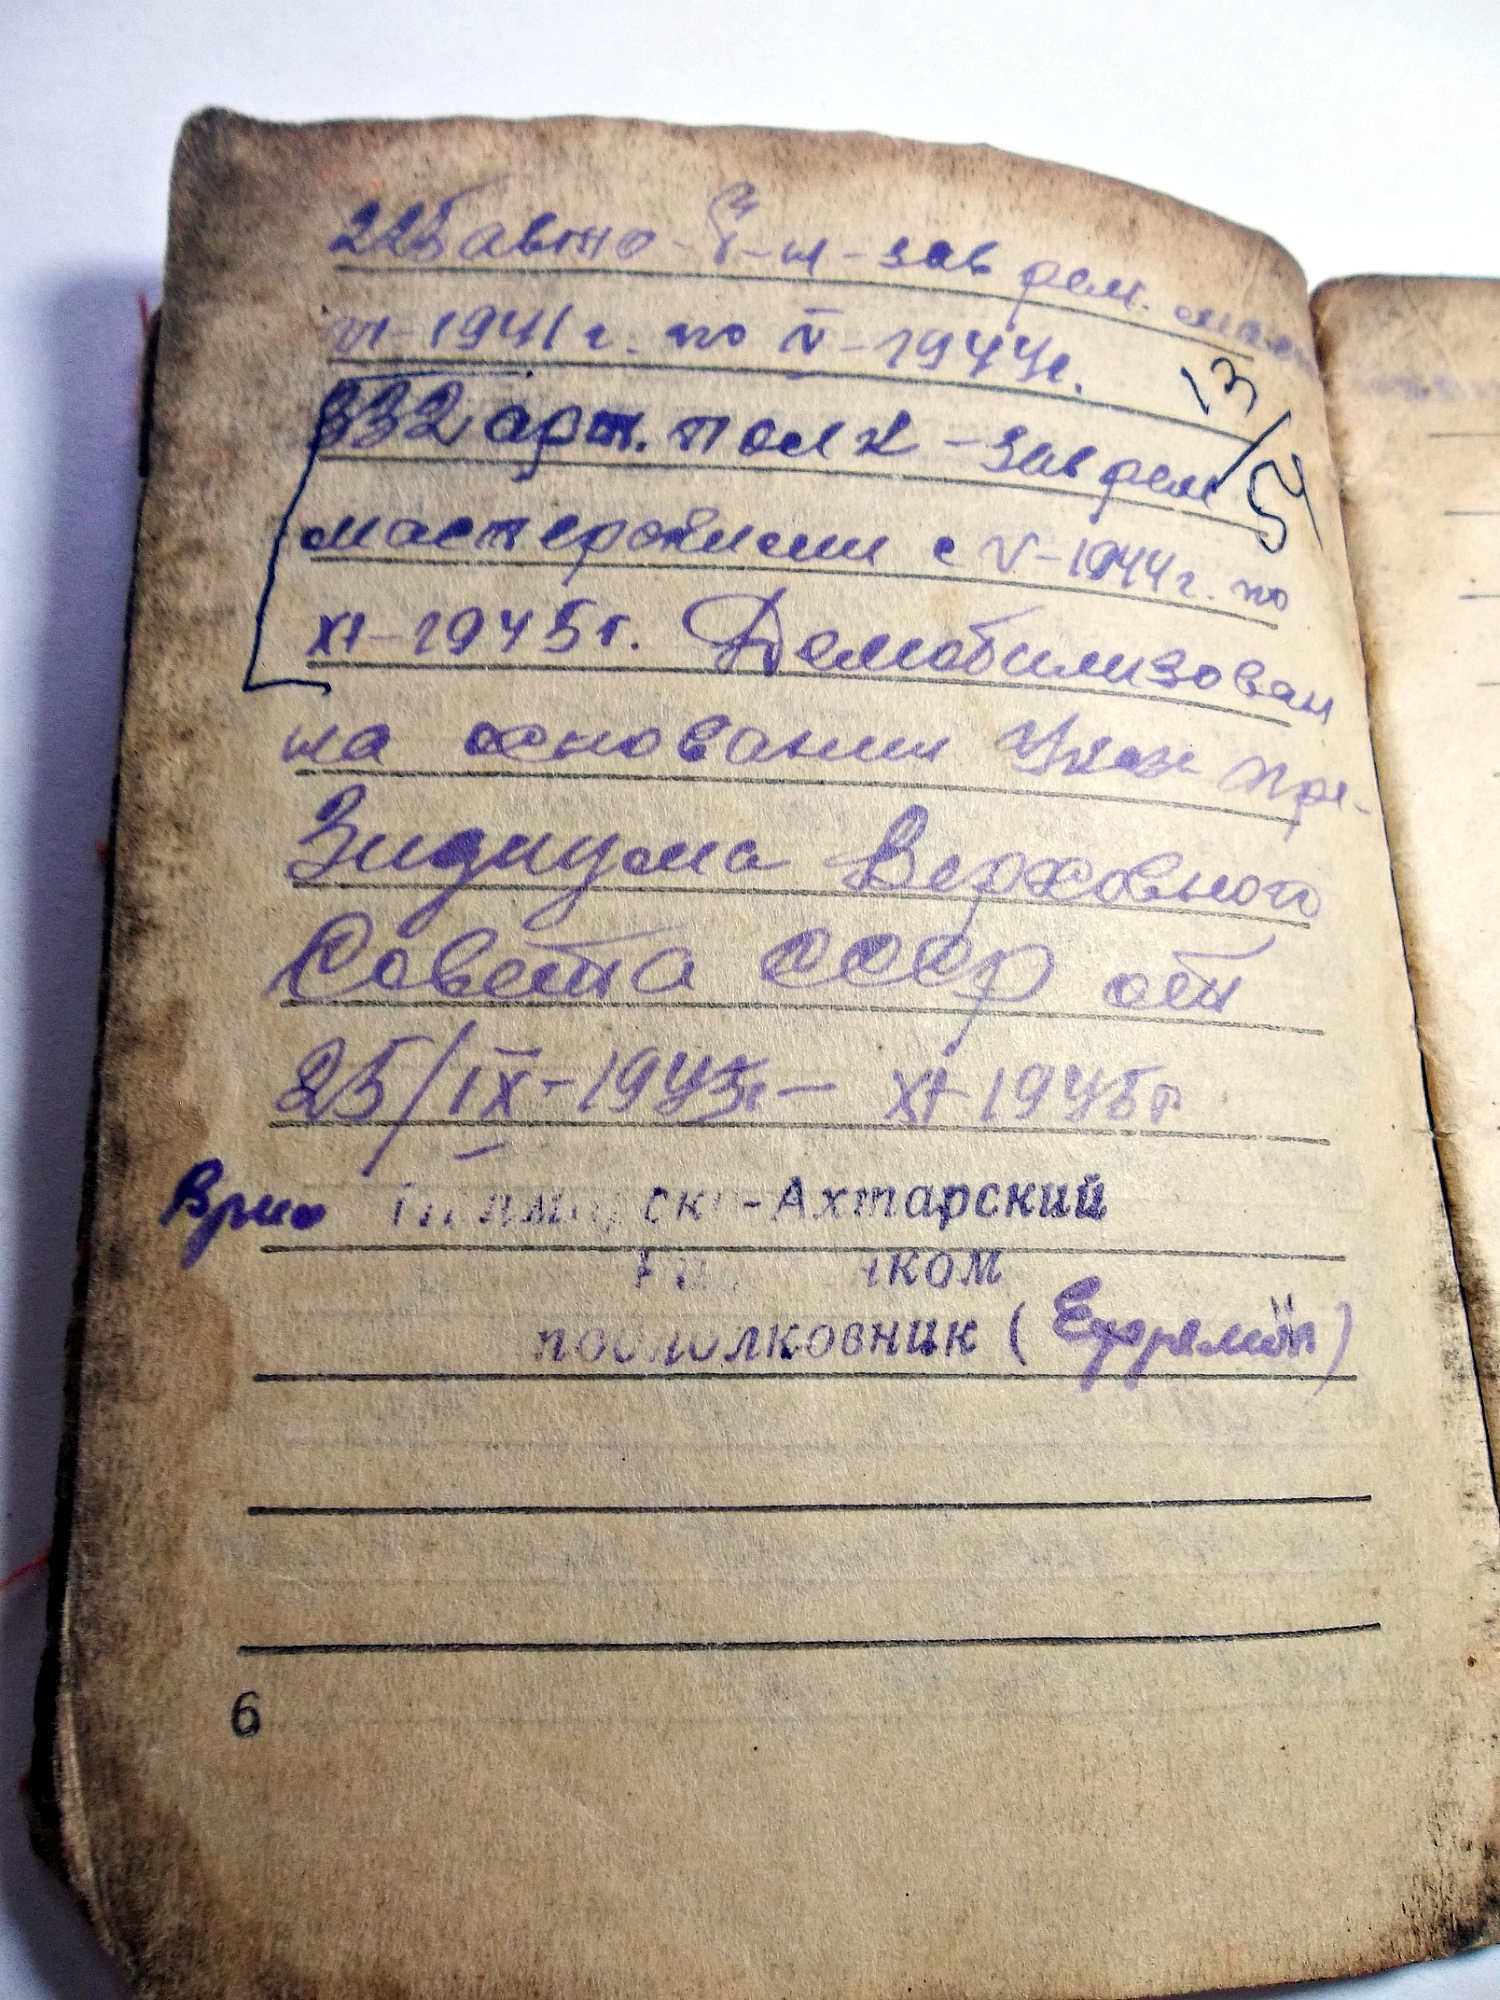 225 авто-б-н-зав рем. маст
VI-1941г. по V-1944г.
13/5
332 арт. полк - зав рем
мастерскими с V-1944г. по
XI-1945г. Демобилизован
на основании Указ Пре-
зидиума Верховного
Совета СССР от
25/IX-1945г - XI-1945г.
Врио Приморско-Ахтарский
ком
подполковник (Ефремов)
6